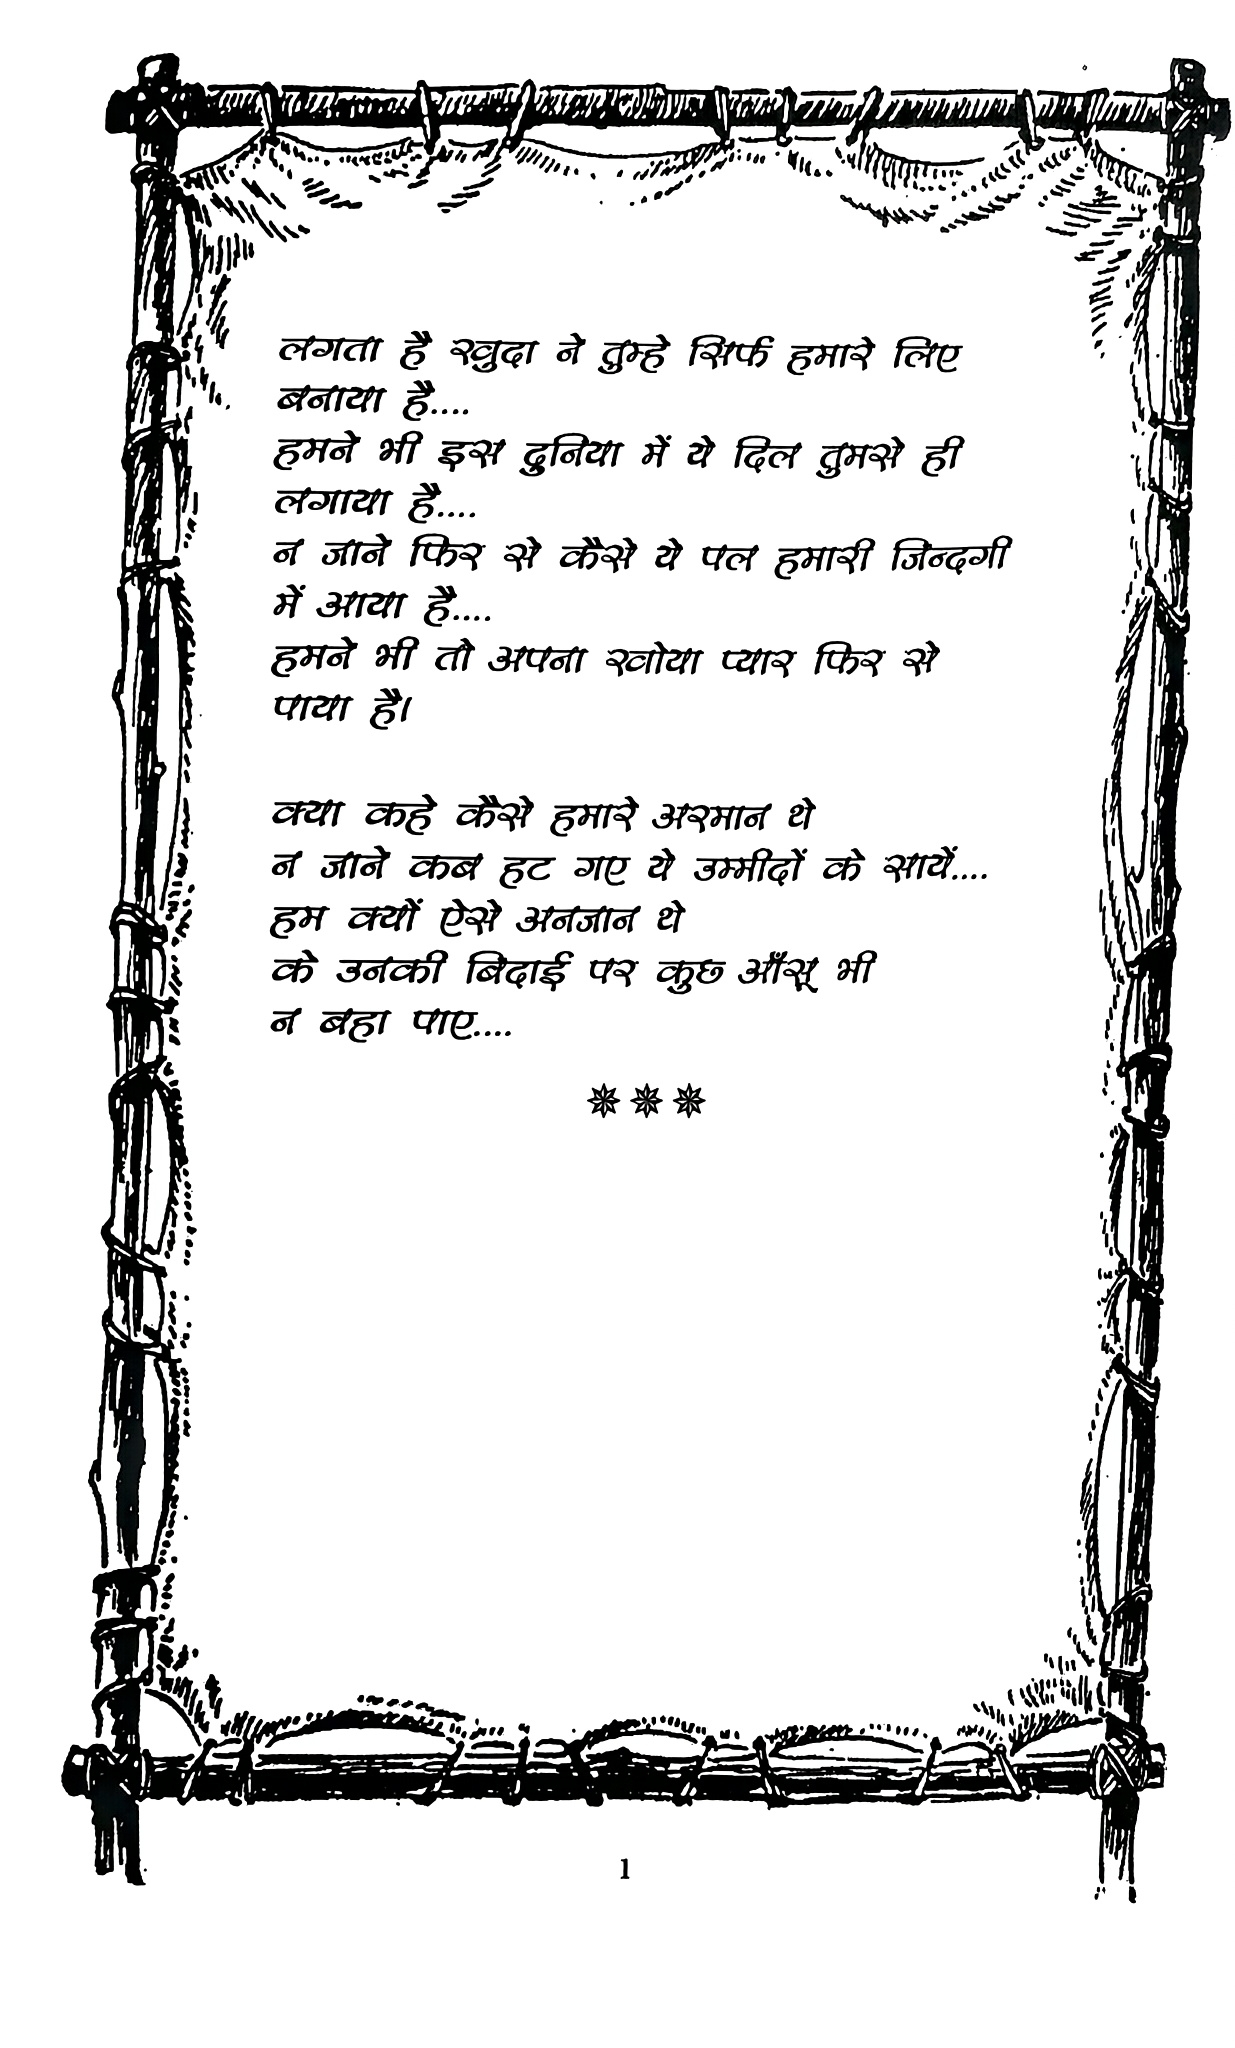 लगता है खुदा ने तुम्हे सिर्फ हमारे लिए
बनाया है....
हमने भी इस दुनिया में ये दिल तुमसे ही
लगाया है....
न जाने फिर से कैसे ये पल हमारी जिन्दगी
में आया है....
हमने भी तो अपना खोया प्यार फिर से
पाया है।
क्या कहे कैसे हमारे अरमान थे
न जाने कब हट गए ये उम्मीदों के सायें....
हम क्यों ऐसे अनजान थे
के उनकी बिदाई पर कुछ आँसू भी
न बहा पाए....
1